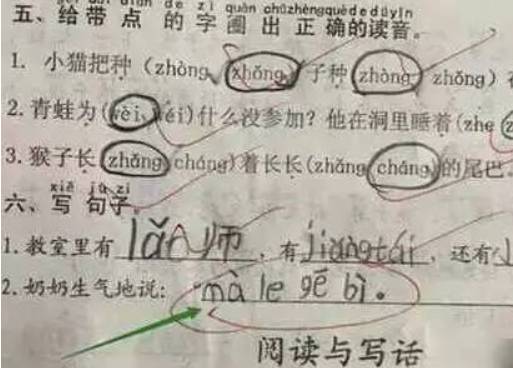 gěi dài diǎn de zì quān chūzhèngquèdedúyīn
五、给带点的字圈出正确的读音。
1. 小猫把种(zhòng、zhǒng)子种(zhòng、zhǒng)
2. 青蛙为(wèi、wéi)什么没参加?他在洞里睡着(zhe
3. 猴子长(zhǎng、cháng)着长长(zhǎng、cháng)的尾巴。
xiě jù zi
六、写句子。
1. 教室里有lǎo师,有jiǎngtái,还有
2. 奶奶生气地说:mà le gē bì。
阅读与写话